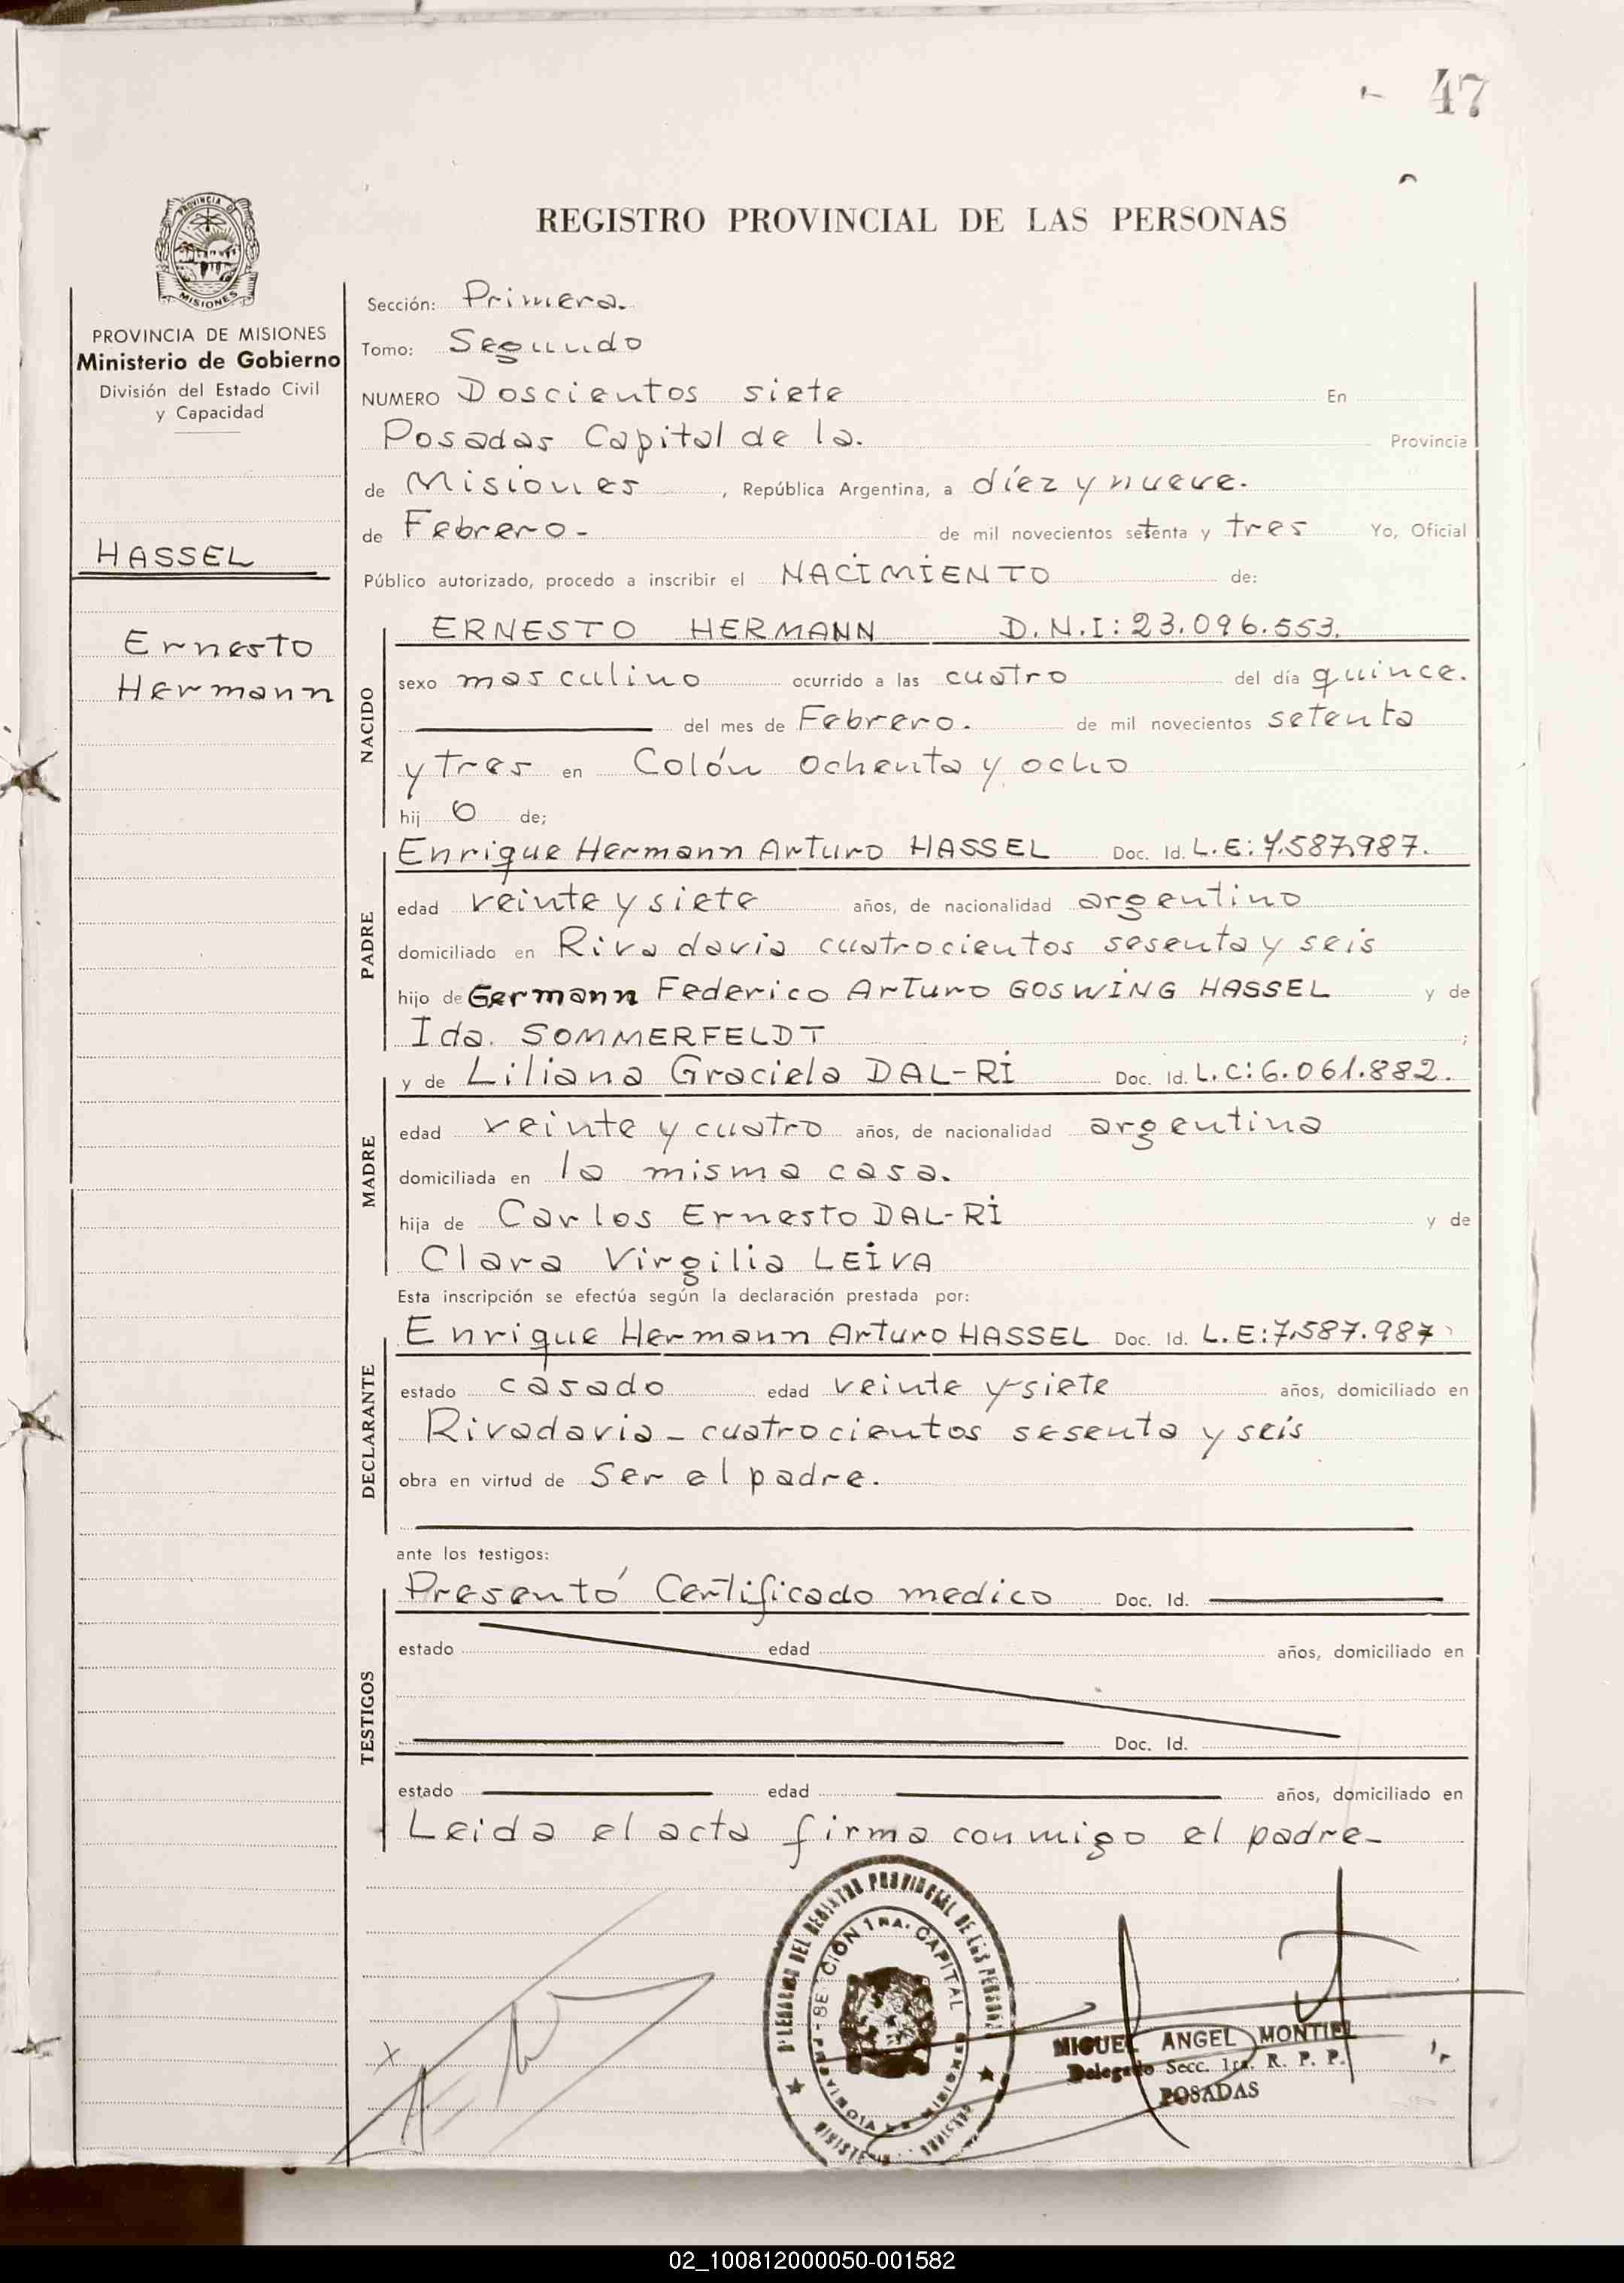 47
REGISTRO PROVINCIAL DE LAS PERSONAS
PROVINCIA DE
MISIONES
PROVINCIA DE MISIONES
Ministerio de Gobierno
División del Estado Civil
y Capacidad
HASSEL
Ernesto
Hermann
Sección: Primera.
Tomo: Segundo
NUMERO Doscientos siete En
Posadas Capital de la. Provincia
de Misiones , República Argentina, a diez y nueve.
de Febrero - de mil novecientos setenta y tres Yo, Oficial
Público autorizado, procedo a inscribir el NACIMIENTO de:
NACIDO
ERNESTO HERMANN D.N.I: 23.096.553.
sexo masculino ocurrido a las cuatro del día quince.
del mes de Febrero. de mil novecientos setenta
y tres en Colón ochenta y ocho
hij o de;
PADRE
Enrique Hermann Arturo HASSEL Doc. Id. L.E: 7.587.987.
edad veinte y siete años, de nacionalidad argentino
domiciliado en Rivadavia cuatrocientos sesenta y seis
hijo de Germann Federico Arturo GOSWING HASSEL y de
Ida. SOMMERFELDT ;
MADRE
y de Liliana Graciela DAL-RI Doc. Id. L.C: 6.061.882.
edad veinte y cuatro años, de nacionalidad argentina
domiciliada en la misma casa.
hija de Carlos Ernesto DAL-RI y de
Clara Virgilia LEIVA
Esta inscripción se efectúa según la declaración prestada por:
DECLARANTE
Enrique Hermann Arturo HASSEL Doc. Id. L.E: 7.587.987
estado casado edad veinte y siete años, domiciliado en
Rivadavia - cuatrocientos sesenta y seis
obra en virtud de Ser el padre.
ante los testigos:
TESTIGOS
Presentó Certificado medico Doc. Id.
estado edad años, domiciliado en
Doc. Id.
estado edad años, domiciliado en
Leida el acta firma conmigo el padre-
x
DEL REGISTRO PROVINCIAL DE LAS PERSONAS
1RA. CAPITAL
MIGUEL ANGEL MONTIEL
Delegado Secc. 1ra. R. P. P.
POSADAS
02_100812000050-001582